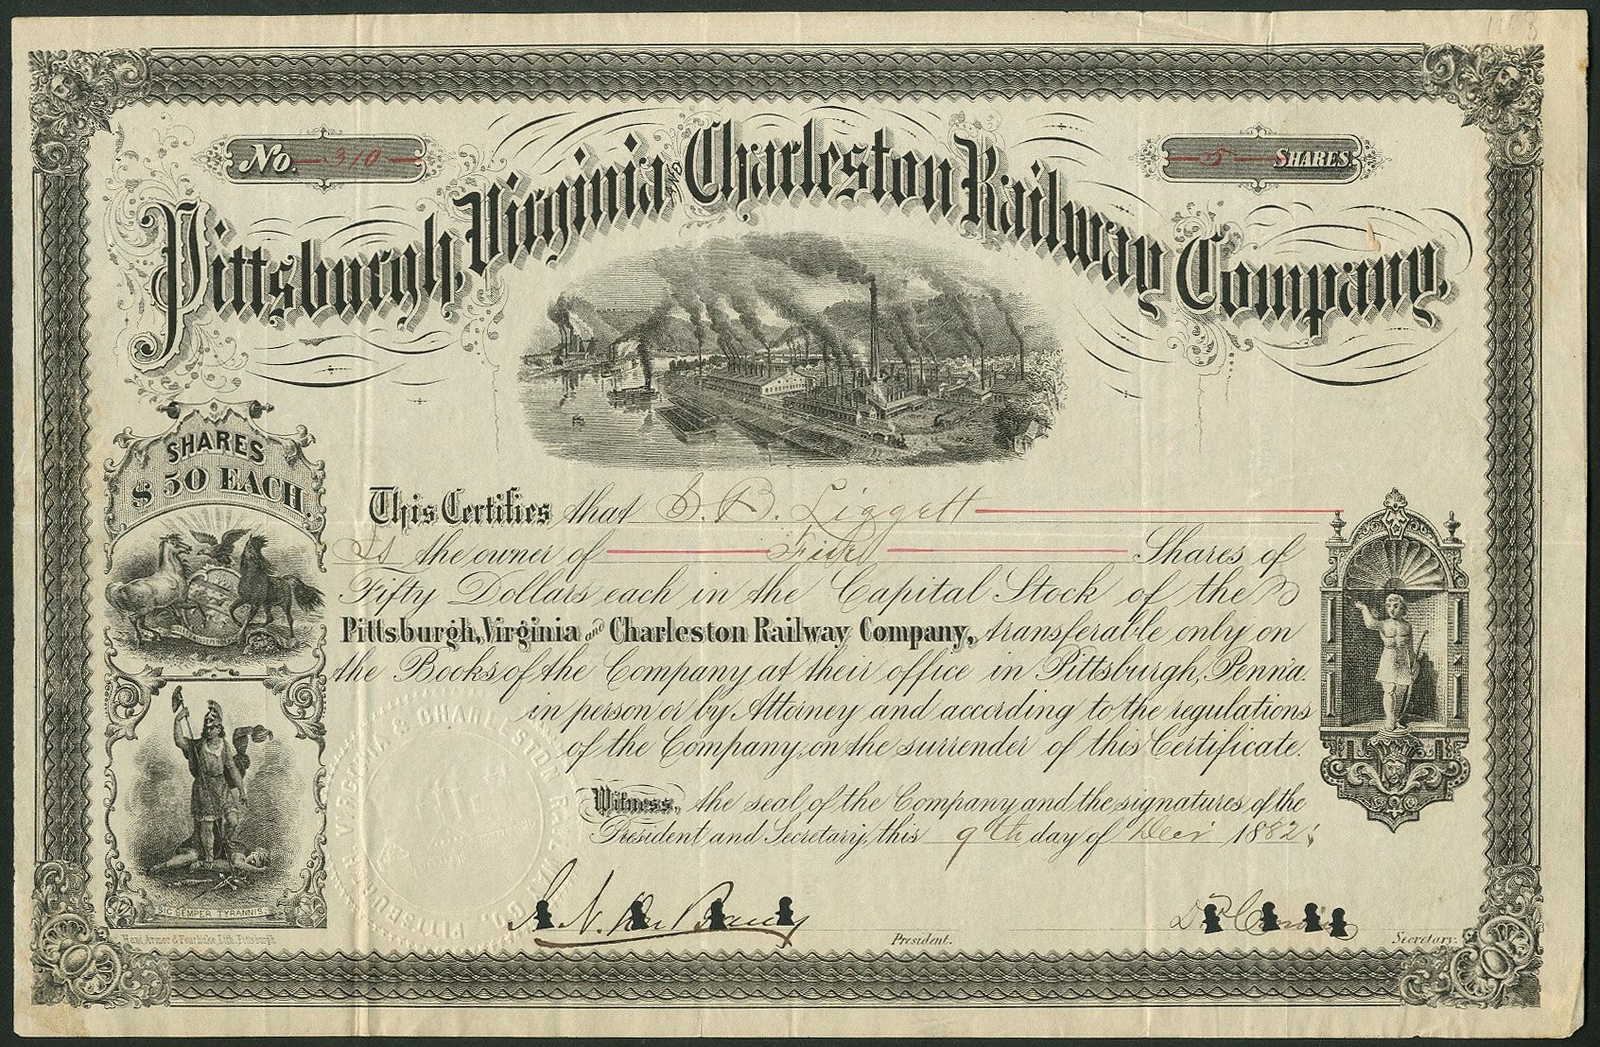 1168
No. 310
5 SHARES.
Pittsburgh, Virginia AND Charleston Railway Company.
SHARES
$50 EACH.
This Certifies that S. B. Liggett
Is the owner of Five Shares of
Fifty Dollars each in the Capital Stock of the
Pittsburgh, Virginia and Charleston Railway Company, transferable only on
the Books of the Company at their office in Pittsburgh, Penn'a.
in person or by Attorney and according to the regulations
of the Company, on the surrender of this Certificate.
Witness, the seal of the Company and the signatures of the
President and Secretary, this 9th day of Decr 1882.
PITTSBURGH VIRGINIA & CHARLESTON RAILWAY CO.
SIC SEMPER TYRANNIS.
President.
Secretary.
Lith. Pittsburgh.